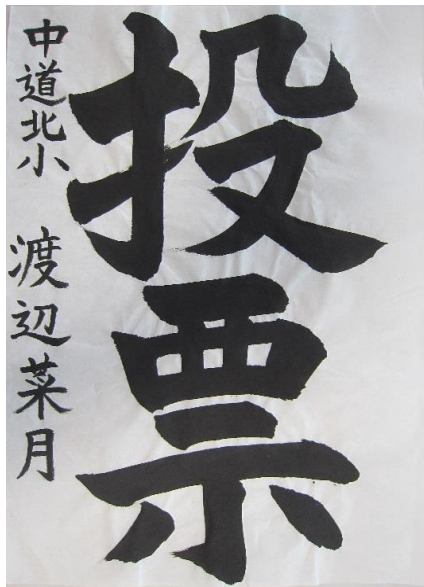 投票
中道北小 渡辺菜月